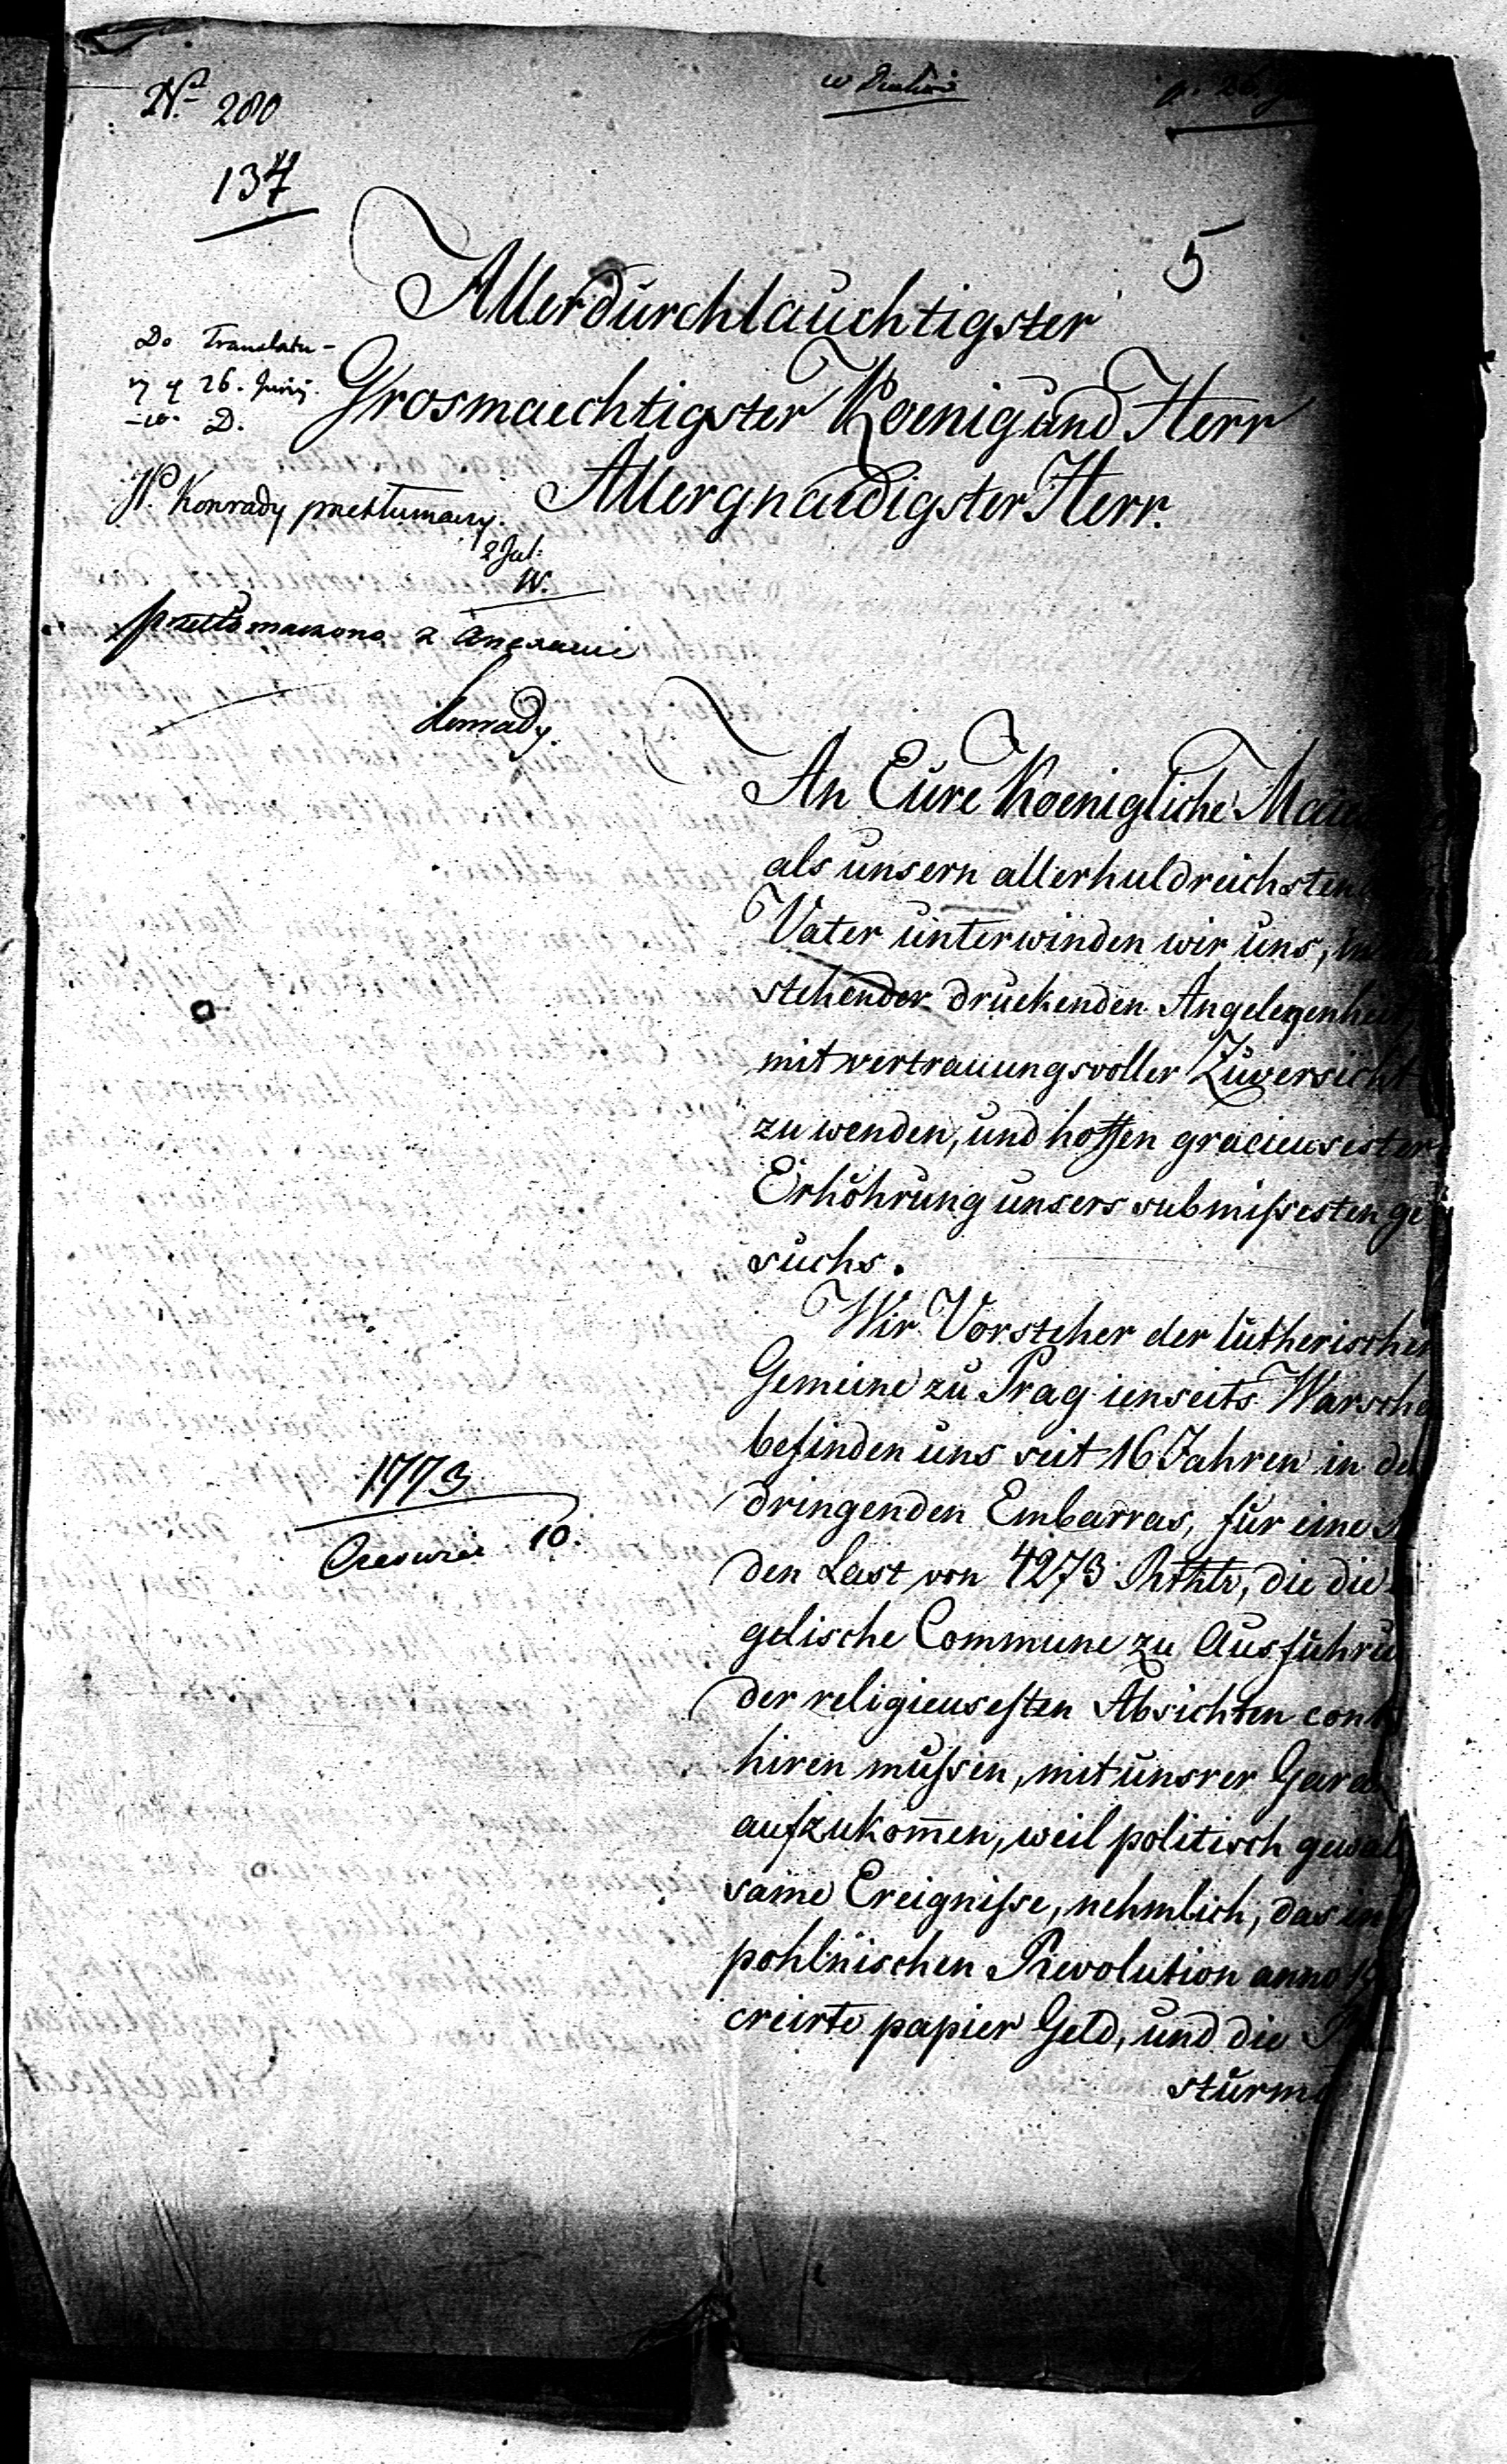 No 280
134
5
Do Translatu-
26. Junij
D.
Allerdurchlauchtigster
Grosmaechtigster Koenig und Herr
Allergnaedigster Herr.
JP. Konrady przetłumaczy.
2 Jul:
W.
przetłomaczono z Anexami
Konrady.
An Eure Koenigliche
als unsern allerhuldreichsten
Vater unterwinden wir uns,
stehender druckenden Angelegenheit,
mit vertrauungsvoller Zuversicht
zu wenden, und hoffen gracieusester
Erhöhrung unsers submißesten ge
suchs.
Wir Vorsteher der lutherischen
Gemeine zu Prag ienseits Warscha
befinden uns seit 16 Jahren in de
dringenden Embarras, für eine
den Last von 4273 Rthlr, die die
gelische Commune zu Ausführu
der religieusesten Absichten cont
hiren mußen, mit unsrer Garan
aufzukom̄en, weil politisch gewal
same Ereigniße, nehmlich, das in
pohlnischen Revolution anno
creirte papier Geld, und die
sturm
1773
Czerwca 10.